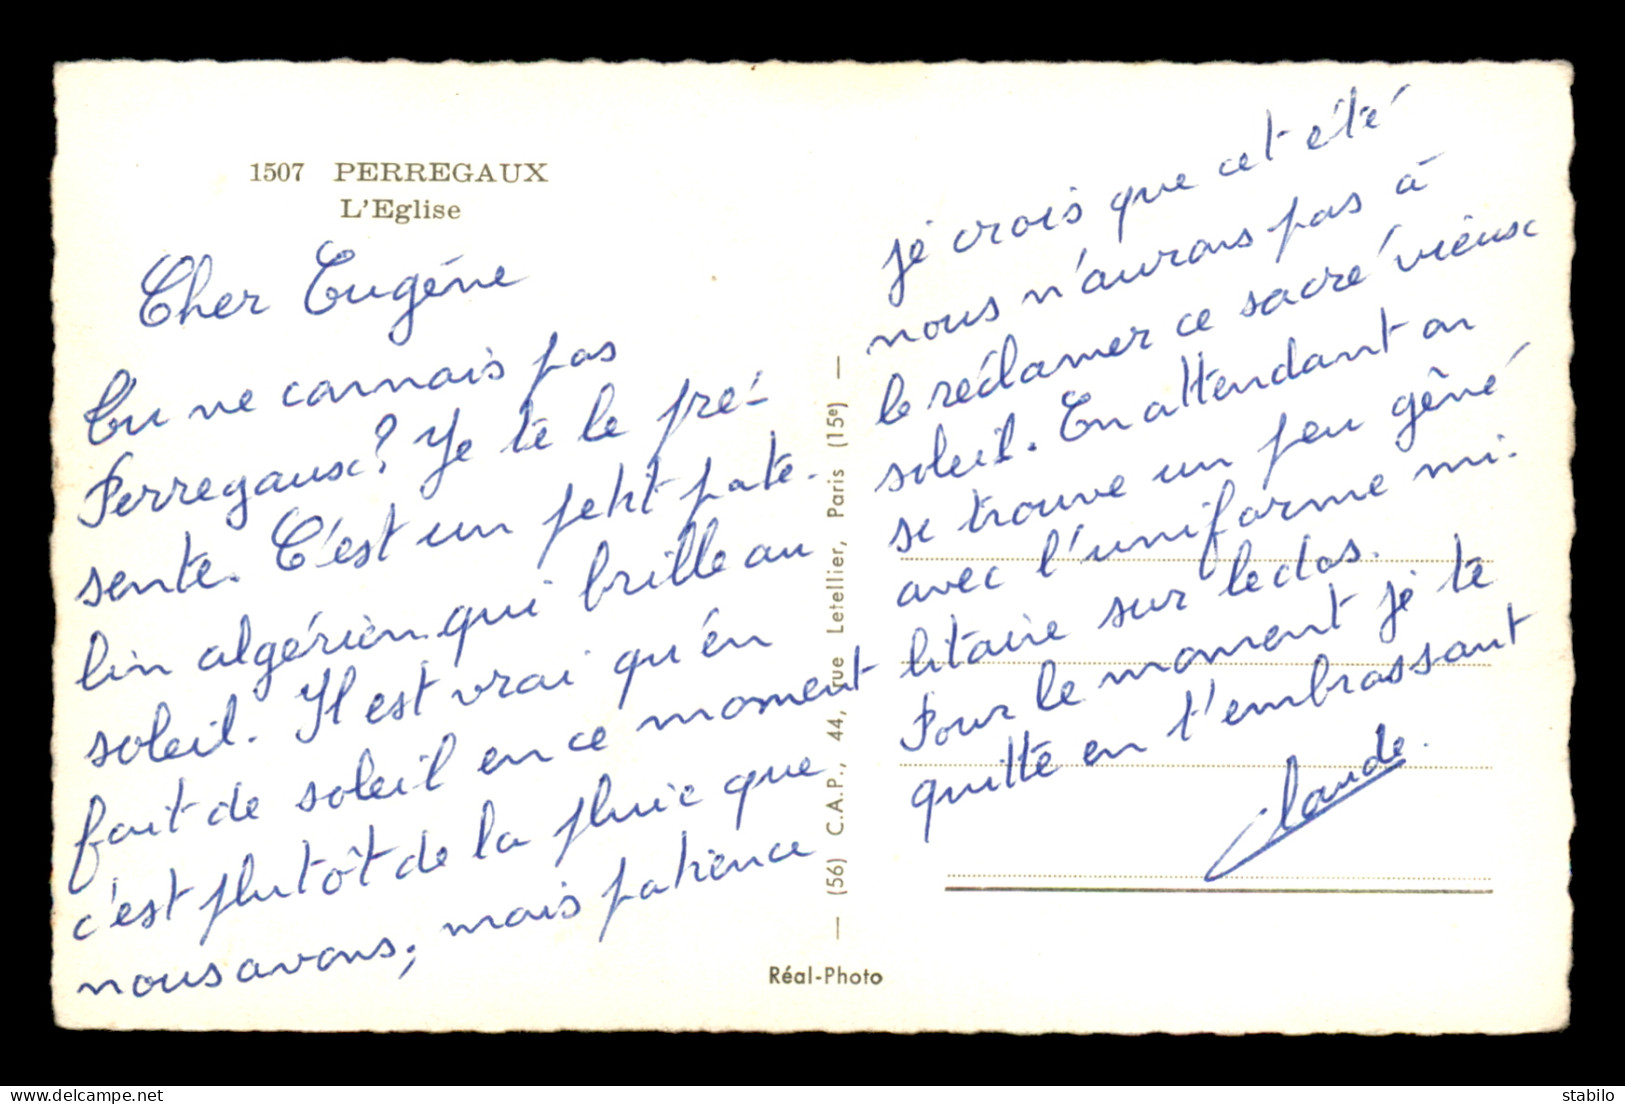 1507 PERREGAUX
L'Eglise
Cher Eugéne
Tu ne connais pas
Perregaux? Je te le pré-
sente. C'est un petit pate-
lin algérien qui brille au
soleil. Il est vrai qu'en
fait de soleil en ce moment
c'est plutôt de la pluie que
nous avons, mais patience
je crois que cet été
nous n'aurons pas à
le réclamer ce sacré vieux
soleil. En attendant on
se trouve un peu gêné
avec l'uniforme mi-
litaire sur le dos.
Pour le moment je te
quitte en t'embrassant
Claude.
— (56) C.A.P., 44, rue Letellier, Paris (15e) —
Réal-Photo
delcampe.net
stabilo